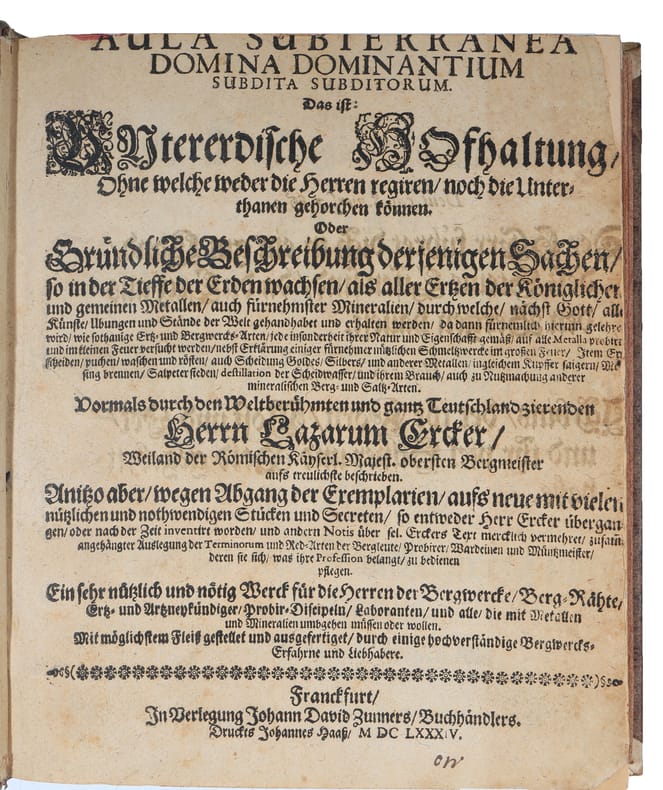 AULA SUBTERRANEA
DOMINA DOMINANTIUM
SUBDITA SUBDITORUM.
Das ist:
Untererdische Hofhaltung/
Ohne welche weder die Herren regiren/ noch die Unter-
thanen gehorchen können.
Oder
Gründliche Beschreibung derjenigen Sachen/
so in der Tieffe der Erden wachsen/ als aller Ertzen der Königlichen
und gemeinen Metallen/ auch fürnehmster Mineralien/ durch welche/ nächst Gott/ alle
Künste/ Ubungen und Stände der Welt gehandhabet und erhalten werden/ da dann fürnemlich hierinn gelehret
wird/ wie sothanige Ertz- und Bergwercks-Arten/ jede insonderheit ihrer Natur und Eigenschafft gemäß/ auf alle Metalla probirt
und im kleinen Feuer versucht werden/ nebst Erklärung einiger fürnehmer nützlichen Schmeltzwercke im grossen Feuer/ Item Ertz
scheiden/ puchen/ waschen und rösten/ auch Scheidung Goldes/ Silbers/ und anderer Metallen/ ingleichem Kupffer saigern/ Mes-
sing brennen/ Salpeter sieden/ destillation der Scheidwasser/ und ihrem Brauch/ auch zu Nutzmachung anderer
mineralischen Berg- und Saltz-Arten.
Vormals durch den Weltberühmten und gantz Teutschland zierenden
Herrn Lazarum Ercker/
Weiland der Römischen Käyserl. Majest. obersten Bergmeister
aufs treulichste beschrieben.
Anitzo aber/ wegen Abgang der Exemplarien/ aufs neue mit vielen
nützlichen und nothwendigen Stücken und Secreten/ so entweder Herr Ercker übergan-
gen/ oder nach der Zeit inventirt worden/ und andern Notis über sel. Erckers Text mercklich vermehret/ zusamt
angehängter Auslegung der Terminorum und Red-Arten der Bergleute/ Probirer/ Wardeinen und Müntzmeister/
deren sie sich/ was ihre Profession belangt/ zu bedienen
pflegen.
Ein sehr nützlich und nötig Werck für die Herren der Bergwercke/ Berg-Rähte/
Ertz- und Artzneykündiger/ Probir-Discipeln/ Laboranten/ und alle/ die mit Metallen
und Mineralien umbgehen müssen oder wollen.
Mit möglichstem Fleiß gestellet und ausgefertiget/ durch einige hochverständige Bergwercks-
Erfahrne und Liebhabere.
Franckfurt/
In Verlegung Johann David Zunners/ Buchhändlers.
Druckts Johannes Haaß/ M DC LXXXIV.